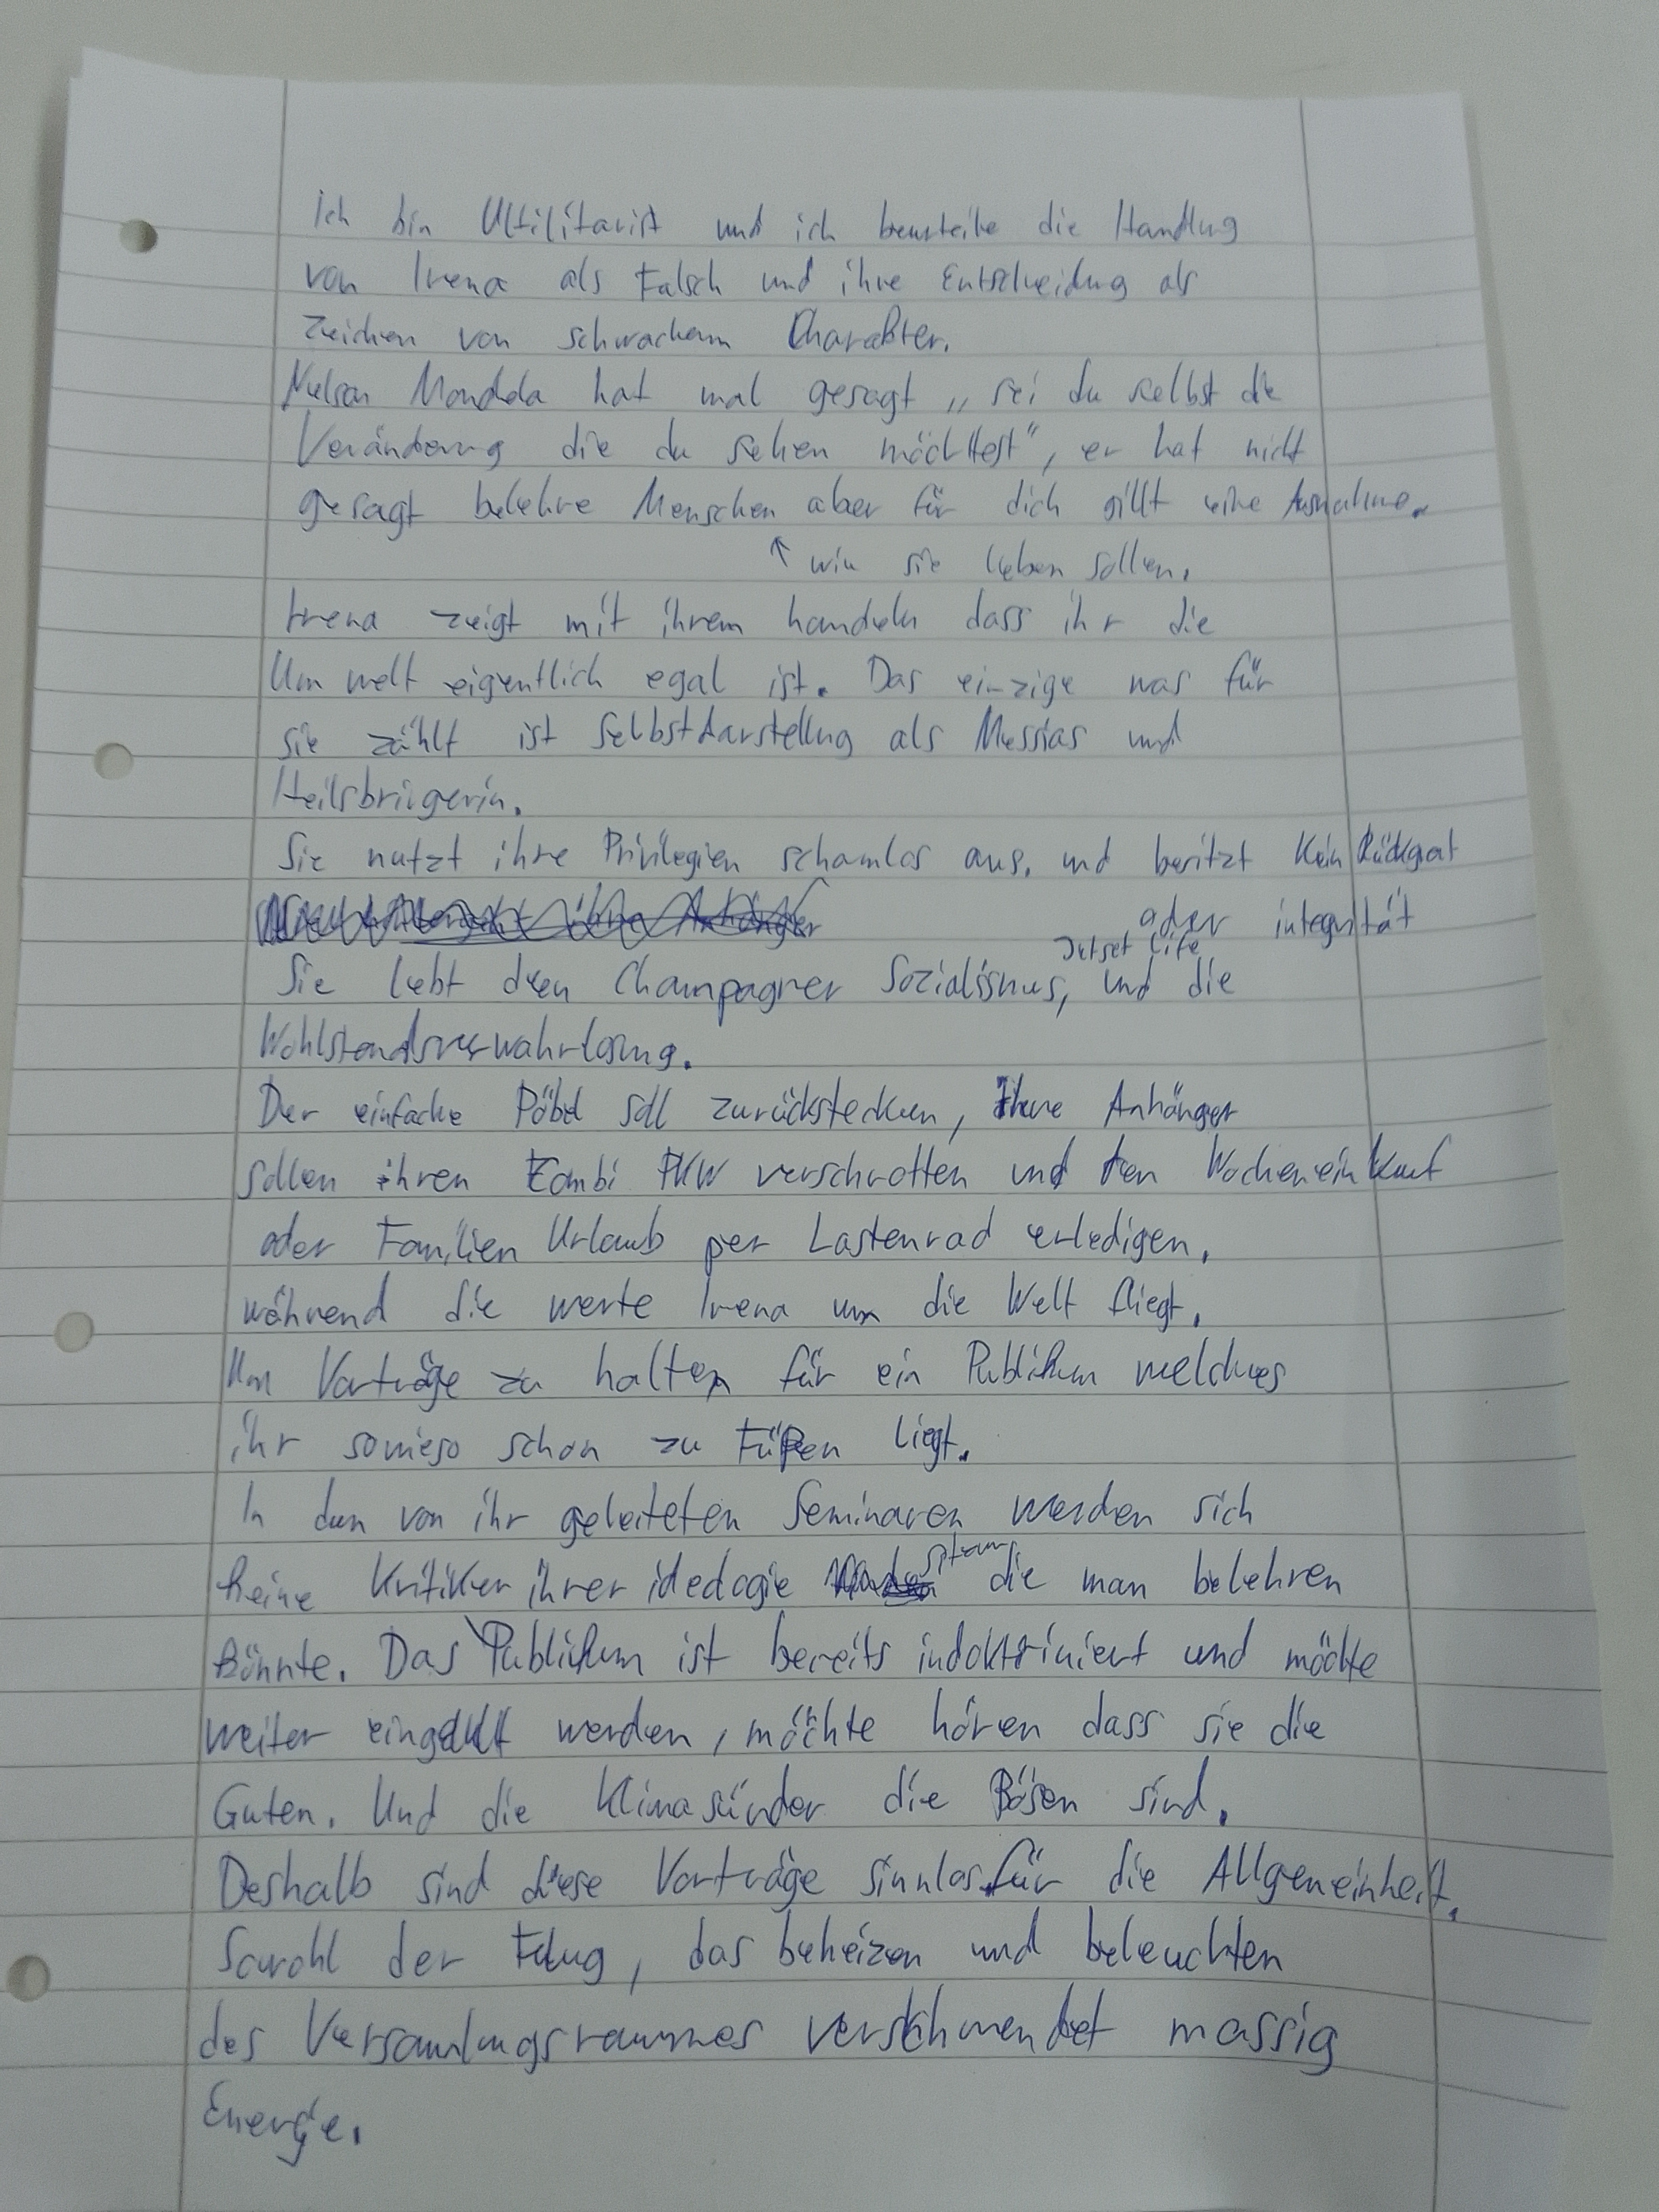 Ich bin Utilitarist und ich beurteile die Handlug
von Irena als Falsch und ihre Entscheidung als
Zeichen von schwachem Charakter.
Nelson Mandela hat mal gesagt „sei du selbst die
Veränderung die du sehen möchtest“, er hat nicht
gesagt belehre Menschen aber für dich gillt eine Ausnahme.
↑ wie sie leben sollen.
Irena zeigt mit ihrem handeln dass ihr die
Umwelt eigentlich egal ist. Das einzige was für
sie zählt ist Selbstdarstellung als Messias und
Heilsbringerin.
Sie nutzt ihre Privilegien schamlos aus, und besitzt kein Rückgrat
oder integrität
Jetset life
Sie lebt den Champagner Sozialismus, und die
Wohlstandsverwahrlosung.
Der einfache Pöbel soll zurückstecken, Ihre Anhänger
sollen ihren Kombi PKW verschrotten und den Wocheneinkauf
oder Familien Urlaub per Lastenrad erledigen,
während die werte Irena um die Welt fliegt.
Um Vorträge zu halten für ein Publikum welches
ihr sowieso schon zu Füßen liegt.
In den von ihr geleiteten Seminaren werden sich
sitzen
keine Kritiker ihrer ideologie die man belehren
könnte. Das Publikum ist bereits indoktriniert und möchte
weiter eingelullt werden, möchte hören dass sie die
Guten. Und die Klimasünder die Bösen sind.
Deshalb sind diese Vorträge sinnlos für die Allgemeinheit.
Sowohl der Flug, das beheizen und beleuchten
des Versamlungsraumes verschwendet massig
Energie.